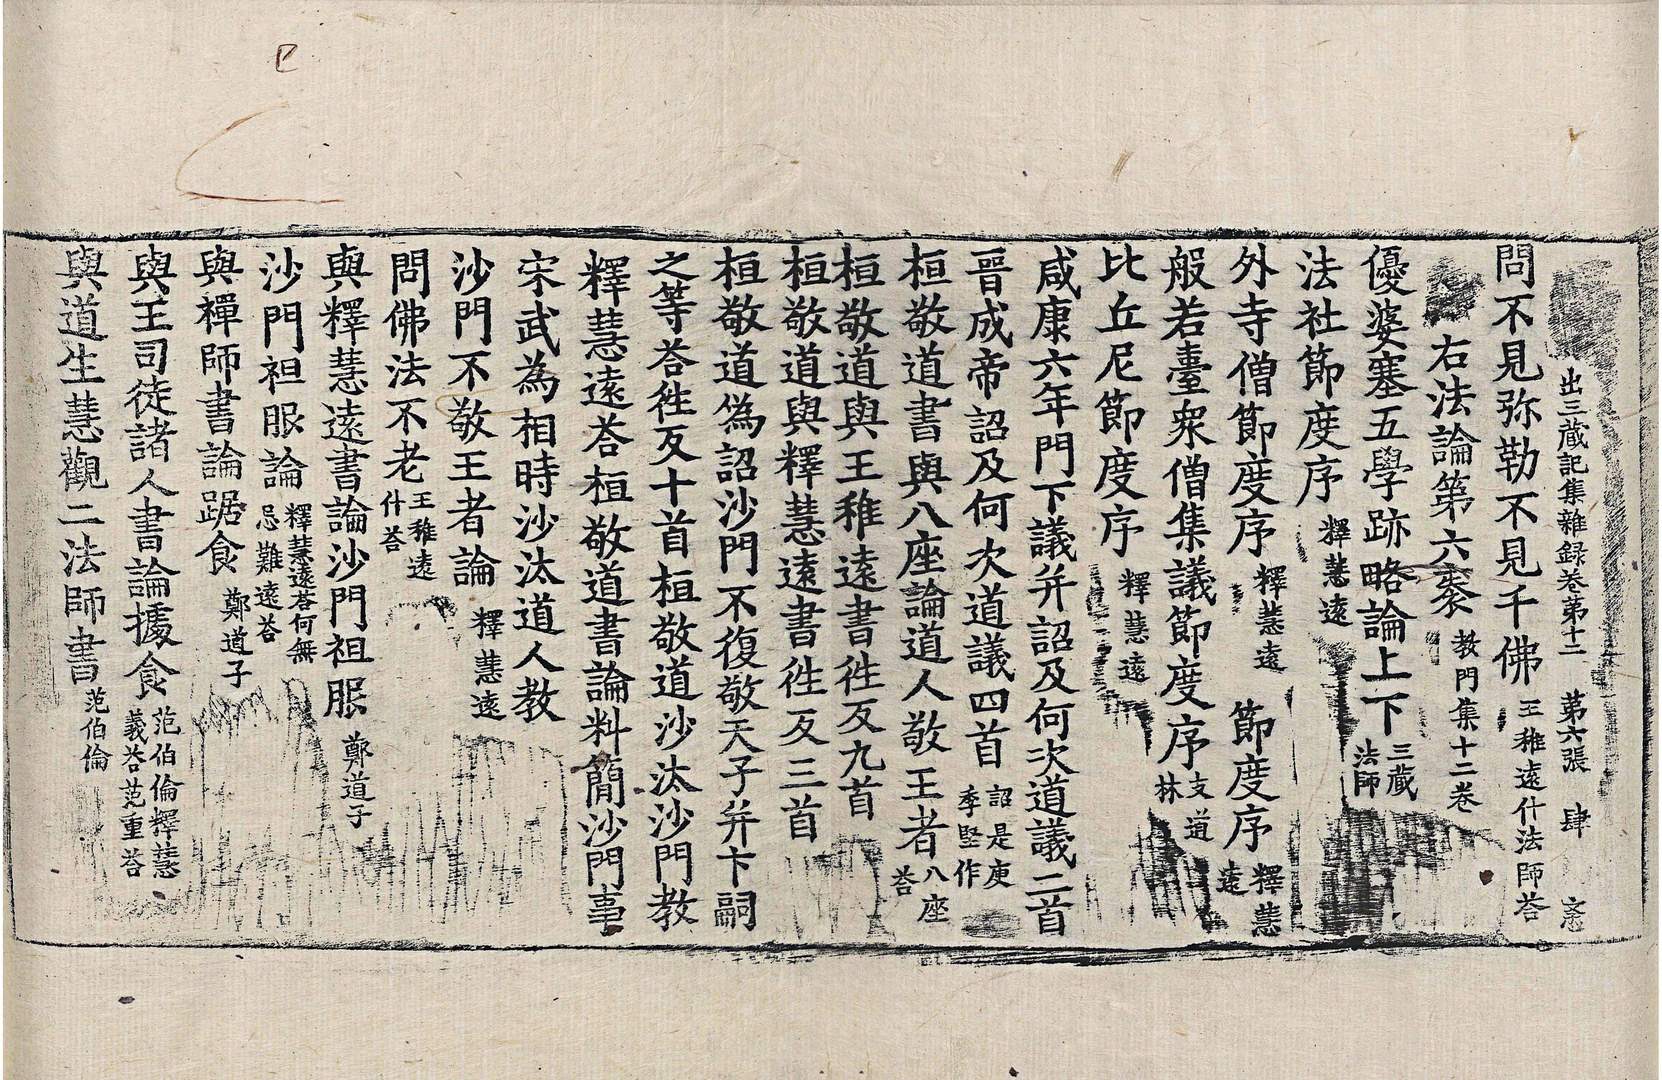 出三藏記集雜録卷第十二 第六張 肆
問不見弥勒不見千佛 王稚遠什法師荅
右法論第六袠 教門集十二卷
優婆塞五學跡略論上下 三藏法師
法社節度序 釋慧遠
外寺僧節度序 釋慧遠 節度序 釋慧遠
般若臺衆僧集議節度序 支道林
比丘尼節度序 釋慧遠
咸康六年門下議并詔及何次道議二首
晉成帝詔及何次道議四首 詔是庾季堅作
桓敬道書與八座論道人敬王者 八座荅
桓敬道與王稚遠書徃反九首
桓敬道與釋慧遠書徃反三首
桓敬道偽詔沙門不復敬天子并卞嗣
之等荅徃反十首桓敬道沙汰沙門教
釋慧遠荅桓敬道書論料簡沙門事
宋武為相時沙汰道人教
沙門不敬王者論 釋慧遠
問佛法不老 王稚遠什荅
與釋慧遠書論沙門袒服 鄭道子
沙門袒服論 釋慧遠荅何無忌難遠荅
與禪師書論踞食 鄭道子
與王司徒諸人書論據食 范伯倫釋慧義荅范重荅
與道生慧觀二法師書 范伯倫